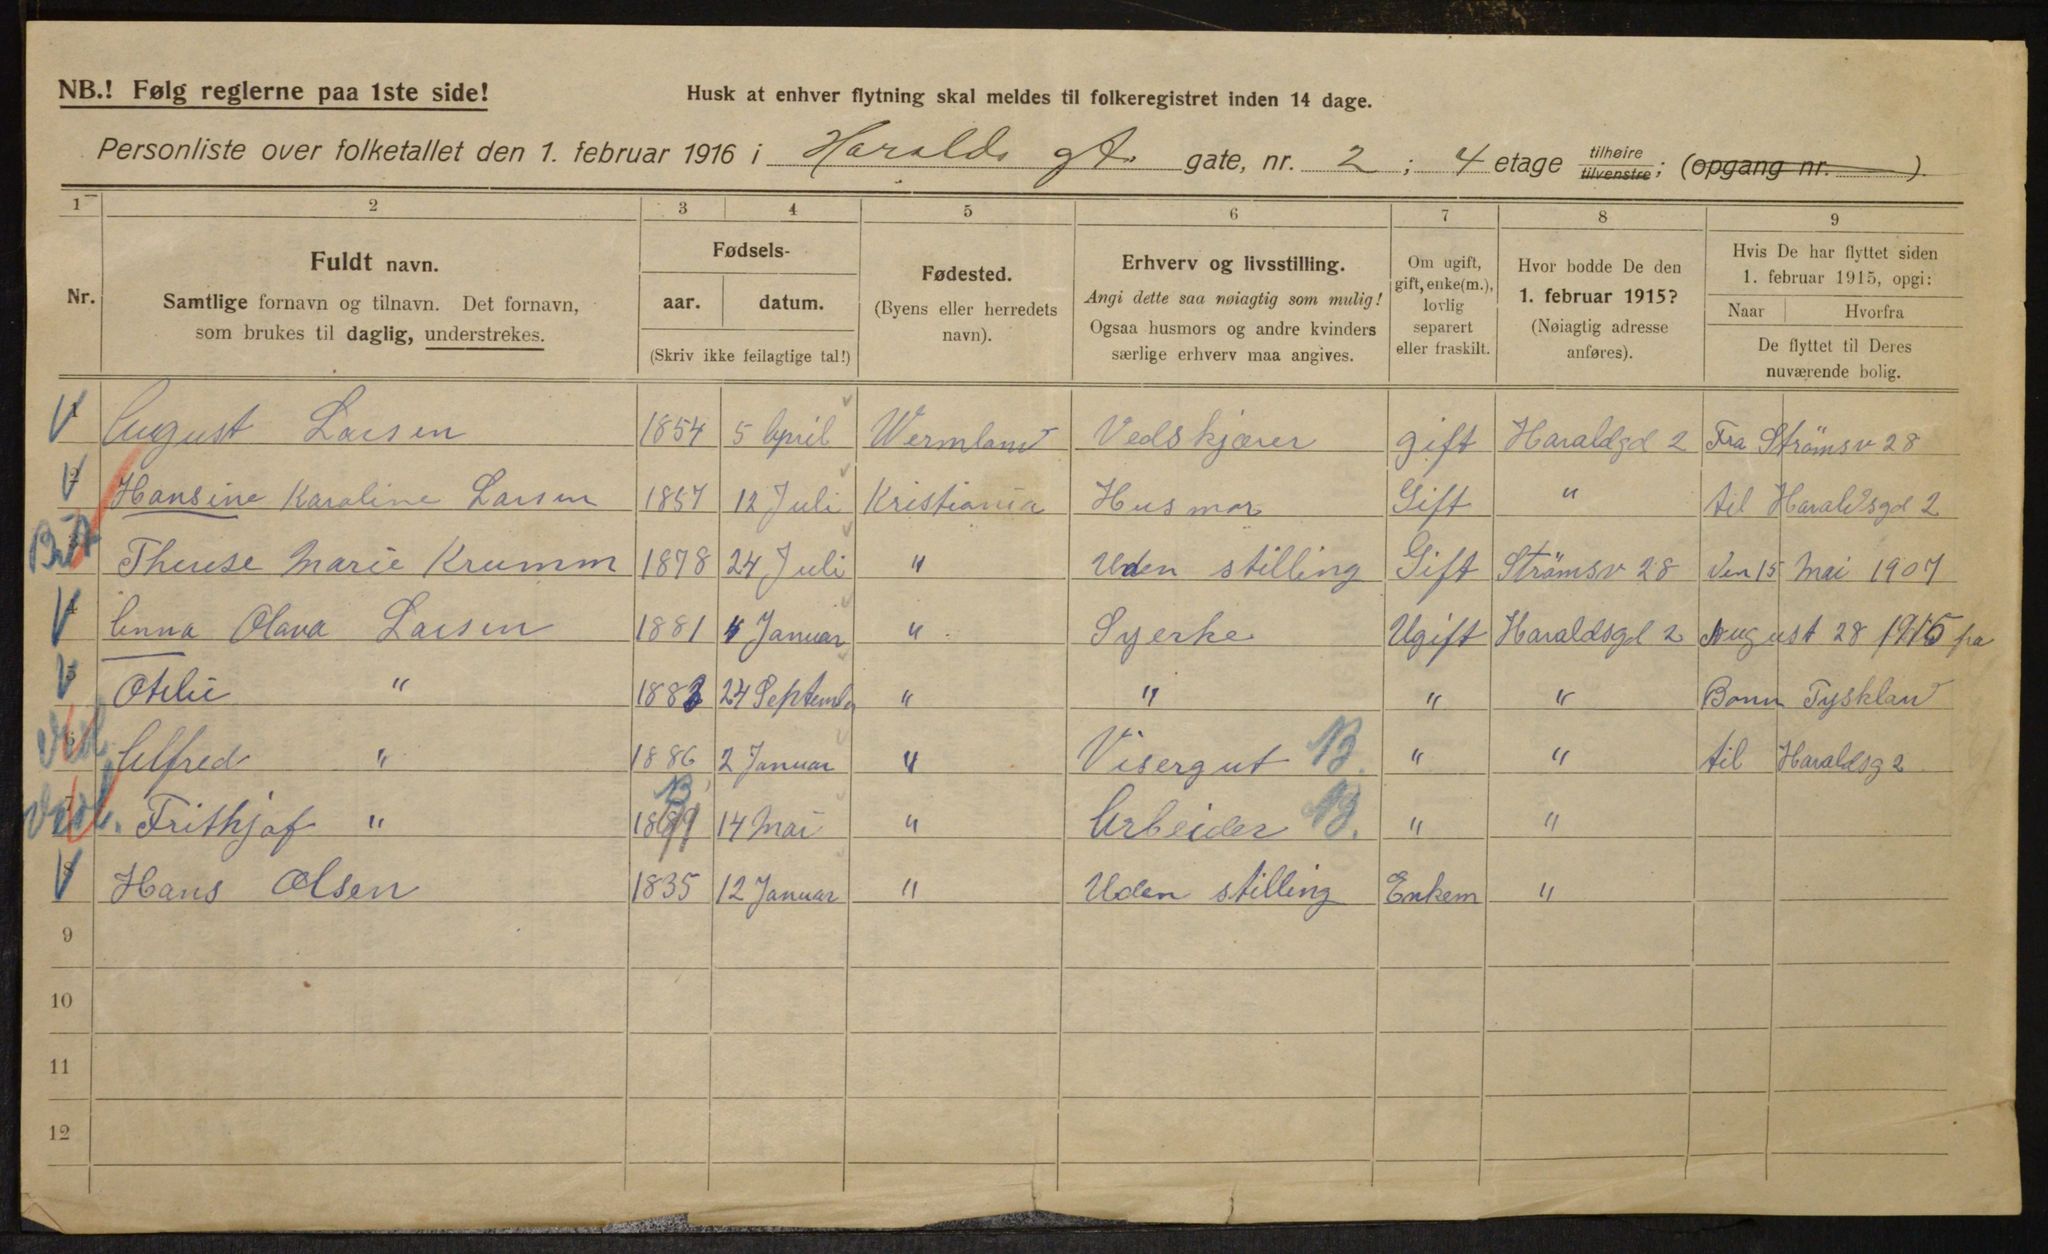 NB.! Følg reglerne paa 1ste side!
Husk at enhver flytning skal meldes til folkeregistret inden 14 dage.
Personliste over folketallet den 1. februar 1916 i Haralds gt. gate, nr. 2 ; 4 etage tilhøire tilvenstre ; (opgang nr. ).
1 2 3 4 5 6 7 8 9
Nr.
Fuldt navn.
Samtlige fornavn og tilnavn. Det fornavn,
som brukes til daglig, understrekes.
Fødsels-
aar. datum.
(Skriv ikke feilagtige tal!)
Fødested.
(Byens eller herredets
navn).
Erhverv og livsstilling.
Angi dette saa nøiagtig som mulig!
Ogsaa husmors og andre kvinders
særlige erhverv maa angives.
Om ugift,
gift, enke(m.),
lovlig
separert
eller fraskilt.
Hvor bodde De den
1. februar 1915?
(Nøiagtig adresse
anføres).
Hvis De har flyttet siden
1. februar 1915, opgi:
Naar Hvorfra
De flyttet til Deres
nuværende bolig.
1 August Larsen 1854 5 April Wermland Vedskjærer gift Haraldgd 2 Fra Strömsv 28
2 Hansine Karoline Larsen 1857 12 Juli Kristiania Husmor Gift " til Haraldsgd 2
Therese Marie Krumm 1878 24 Juli " Uden stilling Gift Strömsv 28 den 15 Mai 1907
4 Anna Olava Larsen 1881 4 Januar " Syerke Ugift Haraldsgd 2 August 28 1915 fra
5 Otelie " 1883 24 Septembr " " " " Bonn Tyskland
6 Alfred " 1886 2 Januar " Visergut B. " " til Haraldsg 2
7 Frithjof " 14 Mai " Arbeider B. " "
8 Hans Olsen 1835 12 Januar " Uden stilling Enkem "
9
10
11
12